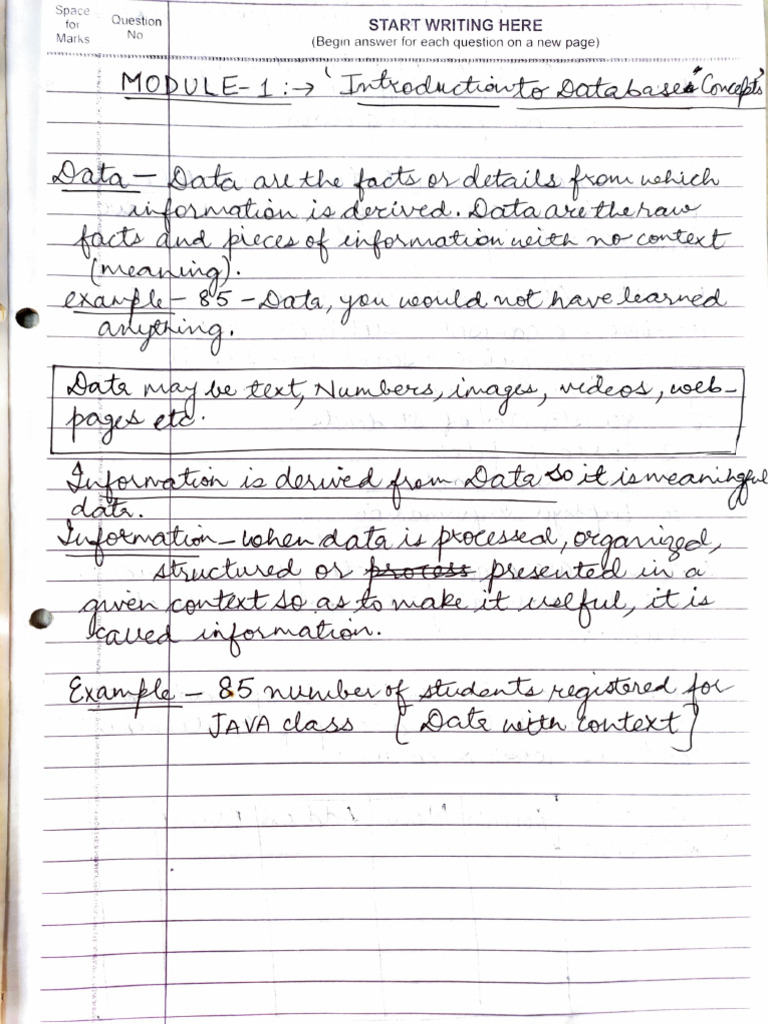 Space for Marks
Question No
START WRITING HERE
(Begin answer for each question on a new page)
MODULE-1 :→ 'Introduction to Database "Concepts"
Data – Data are the facts or details from which
information is derived. Data are the raw
facts and pieces of information with no context
(meaning).
example – 85 – Data, you would not have learned
anything.
Data may be text, Numbers, images, videos, web-
pages etc.
Information is derived from Data so it is meaningful
data.
Information – when data is processed, organized,
structured or process presented in a
given context so as to make it useful, it is
called information.
Example – 85 number of students registered for
JAVA class [Data with context]